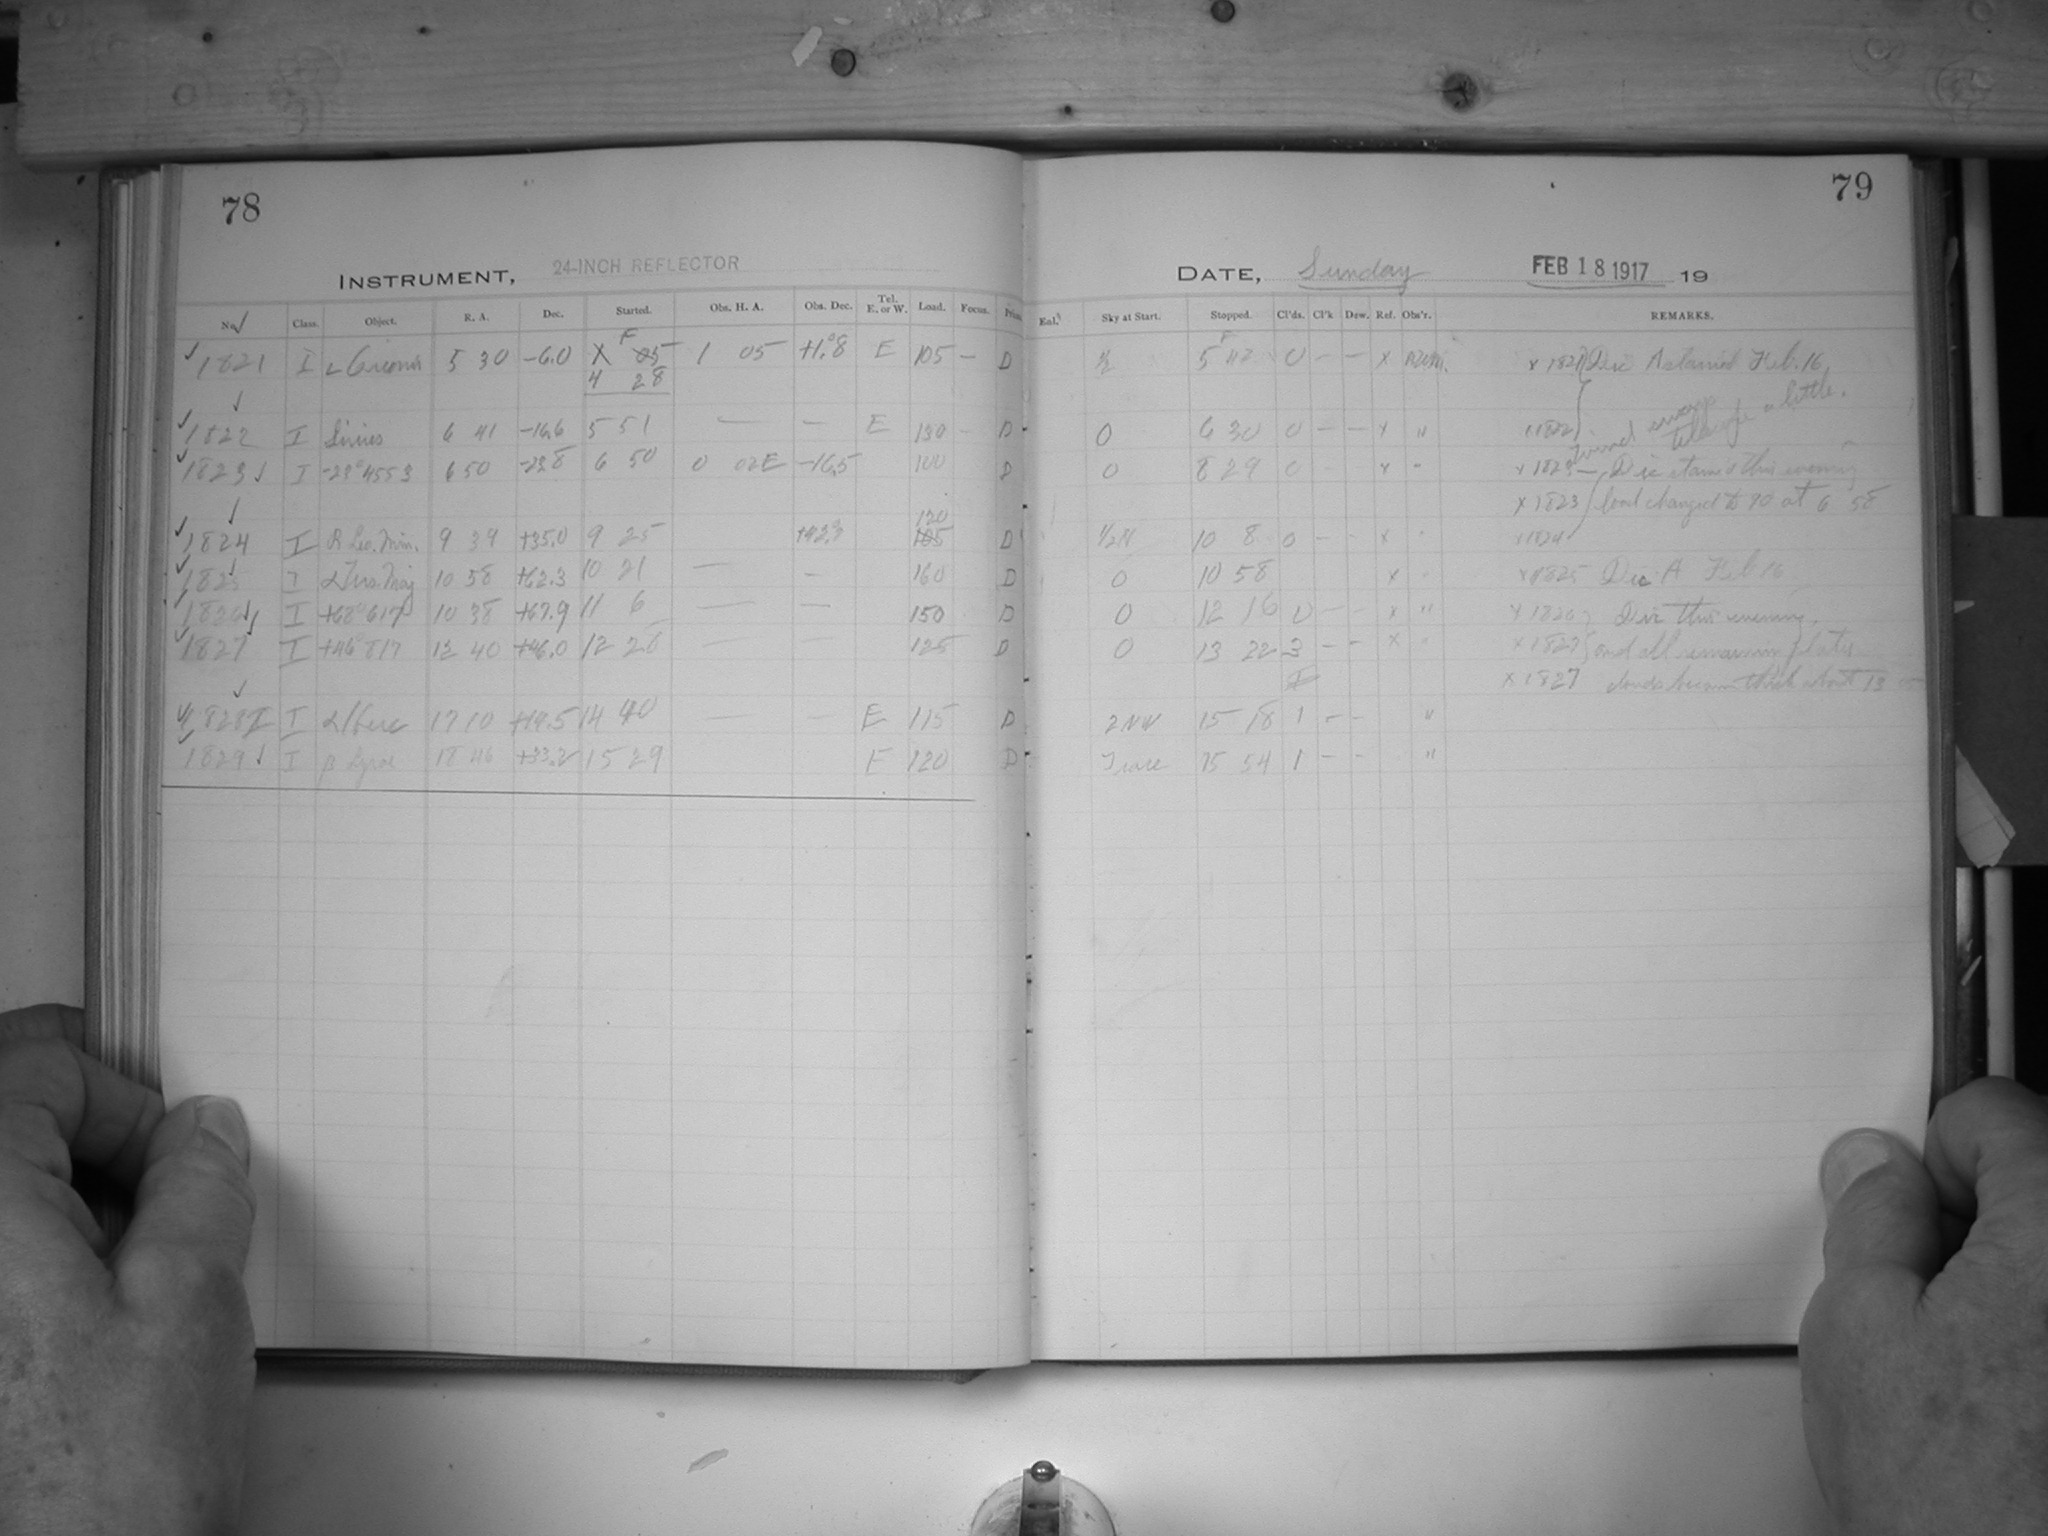 78
INSTRUMENT, 24-INCH REFLECTOR
No. Class. Object. R. A. Dec. Started. Obs. H. A. Obs. Dec. Tel. E. or W. Load. Focus.
1821 I 5 30 -6.0 X F 05 1 05 +1.8 E 105 - D
4 28
1822 I Sirius 6 41 -16.6 5 51 — — E 130 - D
1823 I -23°4553 6 50 -23.8 6 50 0 02E -16.5 100 D
120
1824 I R Leo. Min. 9 39 +35.0 9 25 105 D
1825 I α Urs. Maj 10 58 +62.3 10 21 — — 160 D
1826 I +68°617 10 38 +67.9 11 6 — — 150 D
1827 I +46°817 12 40 +46.0 12 26 — — 125 D
1828 I α Herc 17 10 +14.5 14 40 — — E 115 D
1829 I β Lyrae 18 46 +33.2 15 29 E 120 D
79
DATE, Sunday FEB 18 1917 19
Enl. Sky at Start. Stopped. Cl'ds. Cl'k Dew. Ref. Obs'r. REMARKS.
F
½ 5 42 0 - - x x 1821 Feb. 16
0 6 30 0 - - x " 1822 Wind swayed telescope a little.
0 8 29 0 x " x 1823 — this evening
x 1823 load changed to 90 at 6 58
½N 10 8 0 - - x " 1824
0 10 58 x " x 1825 A Feb 16
0 12 16 0 - - x " x 1826 this evening,
0 13 22 3 - - x " x 1827 and all remaining plates
x 1827 clouds became thick about 13
2 NW 15 18 1 - - "
Trace 15 54 1 - - "